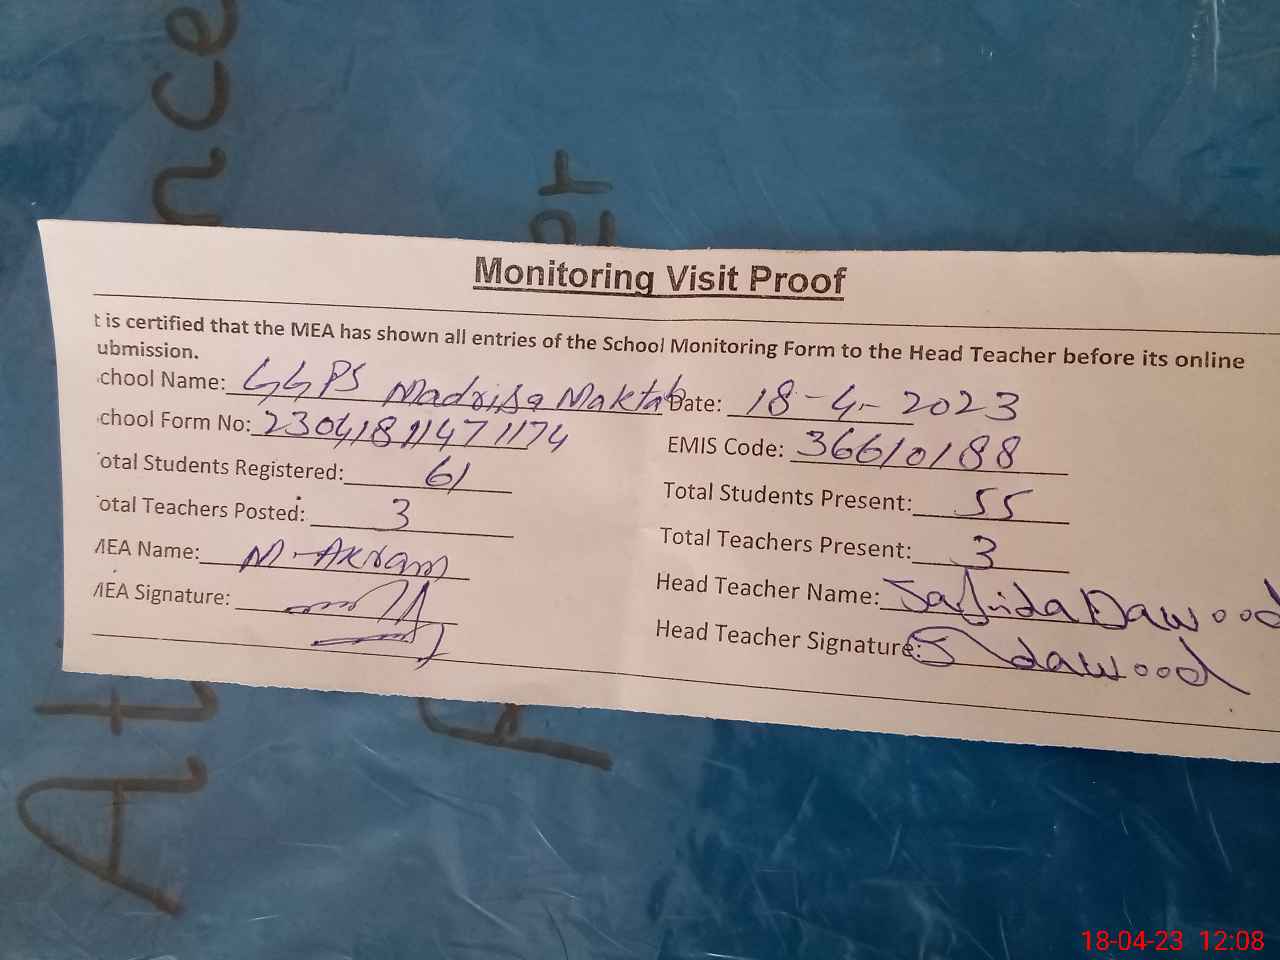 Attendance
Monitoring Visit Proof
t is certified that the MEA has shown all entries of the School Monitoring Form to the Head Teacher before its online
ubmission.
chool Name: GGPS Madrisa Maktab Date: 18-4-2023
chool Form No: 2304181147 1174 EMIS Code: 36610188
otal Students Registered: 61 Total Students Present: 55
otal Teachers Posted: 3 Total Teachers Present: 3
MEA Name: M. Akram Head Teacher Name: Dawood
MEA Signature: Head Teacher Signature: S dawood
18-04-23 12:08